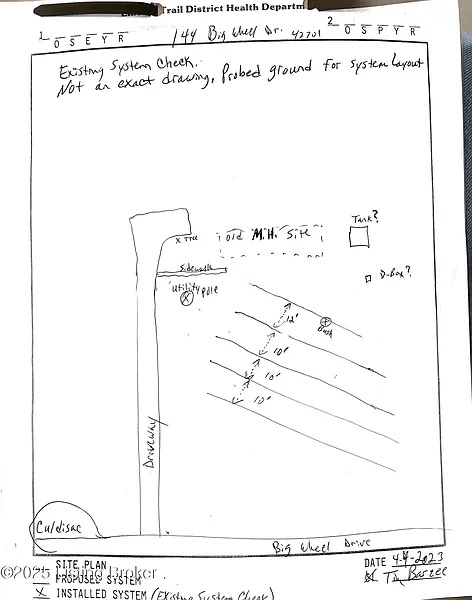 Trail District Health Departm
1 O S E Y R 144 Big Wheel Dr. 42701 2 O S P Y R
Existing System Check.
Not an exact drawing, Probed ground for system layout
Tank?
x Tree
old M.H. Site
Sidewalk
D-Box?
utility pole
12'
Bush
10'
10'
10'
Driveway
Culdisac
Big Wheel Drive
SITE PLAN
DATE 4-4-2023
PROPOSED SYSTEM
X INSTALLED SYSTEM (Existing System Check)
©2025 Listing Broker